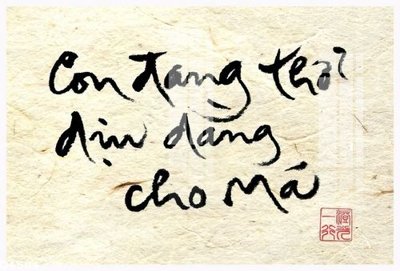 Con đang thở
dịu dàng
cho Má
一行